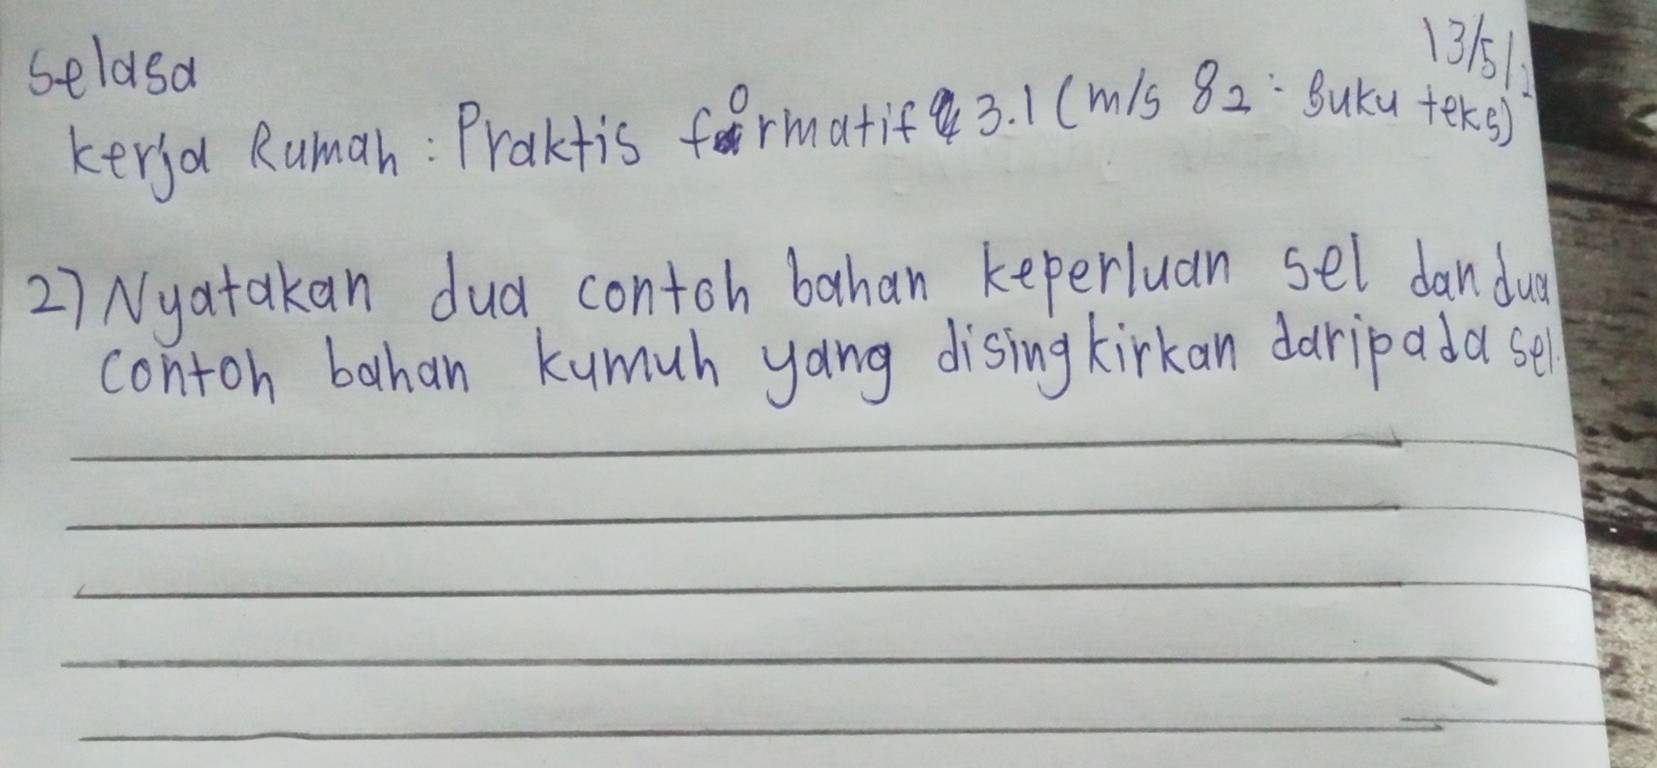 Selasa
13/5/
Kerja Rumah : Praktis formatif 3.1 (m/s 82 : Buku teks)
2) Nyatakan dua contoh bahan keperluan sel dan dua
contoh bahan kumuh yang disingkirkan daripada sel.